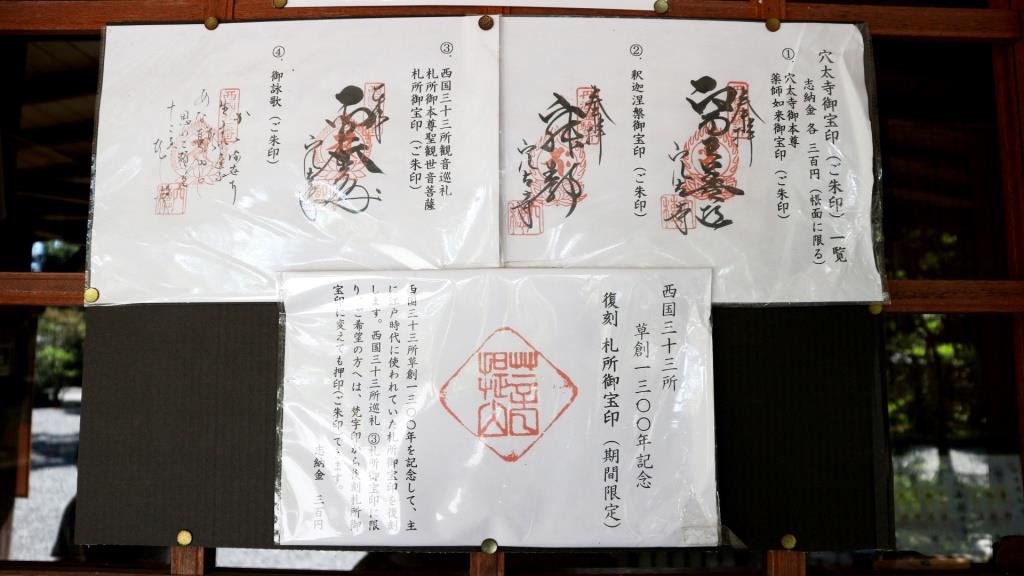 穴太寺御宝印（ご朱印）一覧
志納金 各 三百円（帳面に限る）
①．穴太寺御本尊
薬師如来御宝印（ご朱印）
奉拝
穴太寺
②．釈迦涅槃御宝印（ご朱印）
奉拝
穴太寺
③．西国三十三所観音巡礼
札所御本尊聖観世音菩薩
札所御宝印（ご朱印）
穴太寺
④．御詠歌（ご朱印）
西国三十三所
草創一三〇〇年記念
復刻 札所御宝印（期間限定）
西国三十三所草創一三〇〇年を記念して、主
に江戸時代に使われていた札所御宝印を復刻
します。西国三十三所巡礼 ③札所御宝印に限
り、ご希望の方へは、梵字印から復刻札所御
宝印に変えても押印（ご朱印）できます。
志納金 三百円